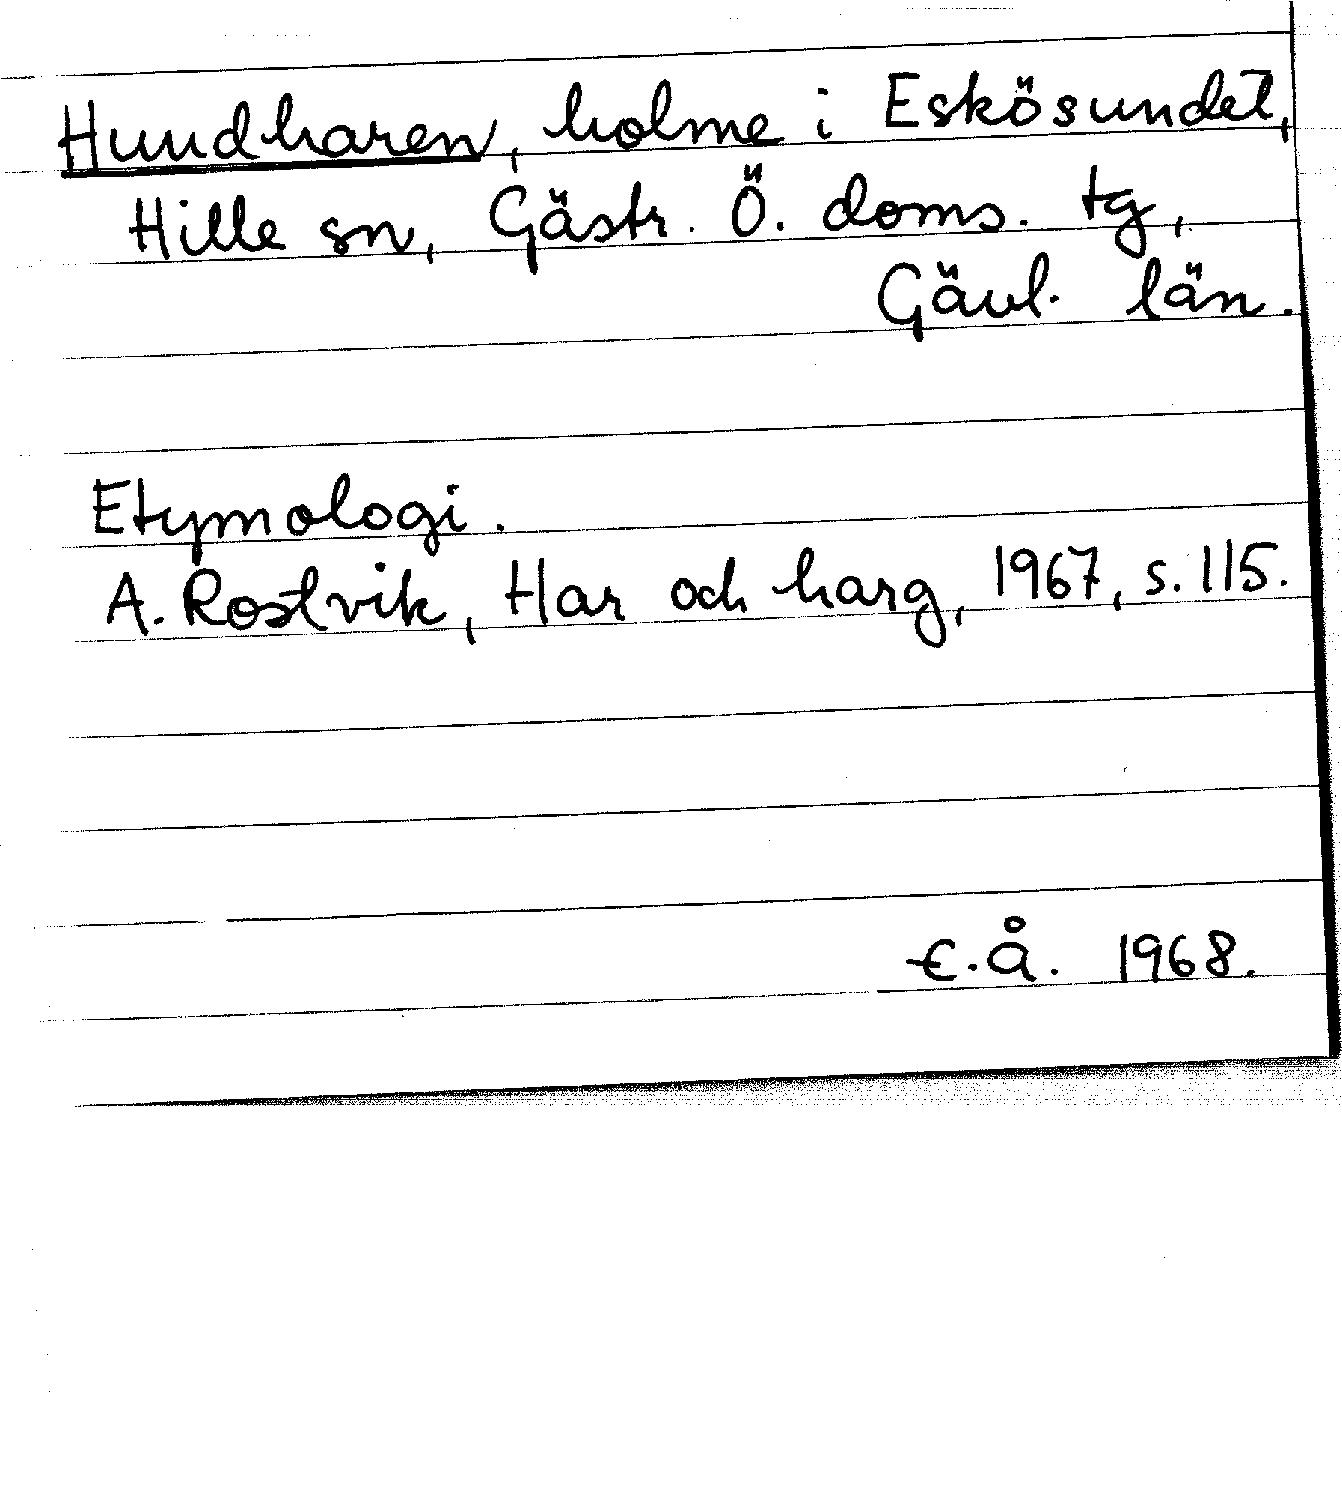 Hundharen, holme i Eskösundet,
Hille sn, Gästr. Ö. doms. tg,
Gävl. län.
Etymologi.
A. Rostvik, Har och harg, 1967, s. 115.
E.Å. 1968.